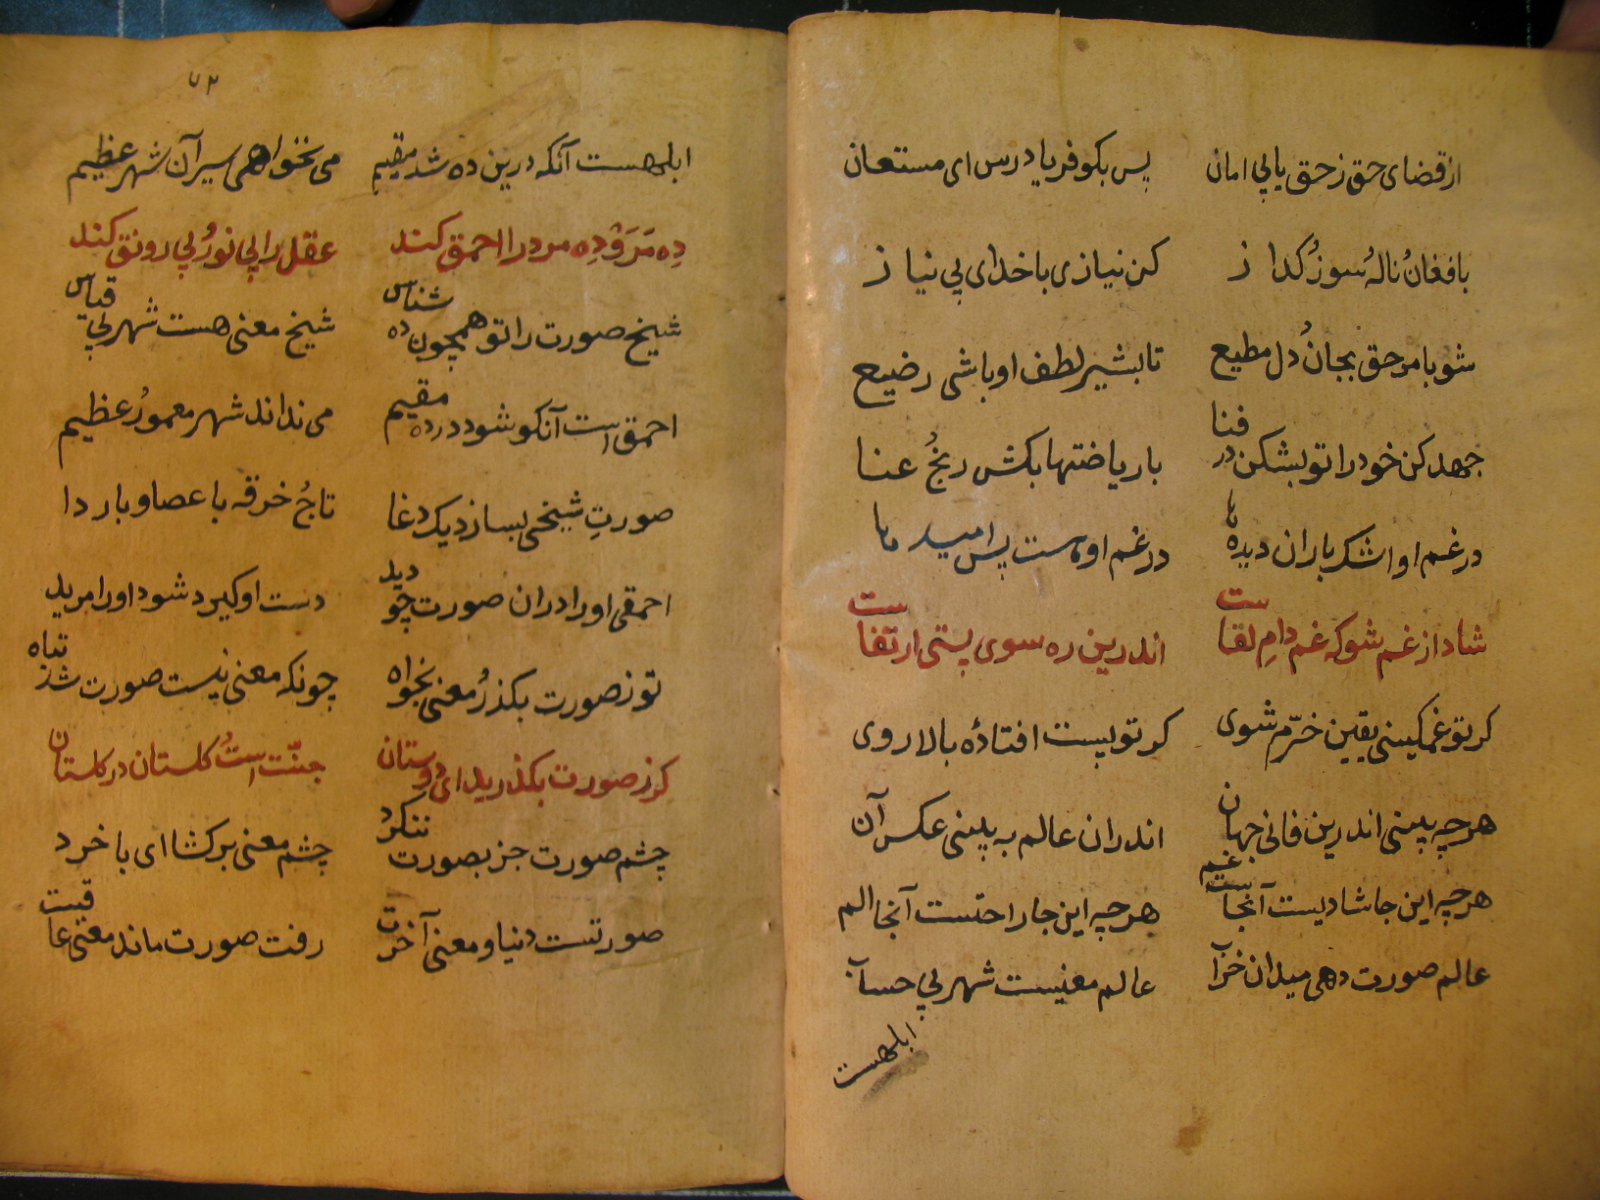 از قضای حق ز حق یابی امان پس بکو فریادرس ای مستعان
با فغانُ نالهُ سوزُ کداز کن نیازی با خدای بی نیاز
شو بامر حق بجانُ دل مطیع تا بشیر لطف او باشی رضیع
جهد کن خود را تو بشکن در فنا با ریاضتها بکش رنجُ عنا
در غم او اشک باران دیدهٔ ما در غم اوست پس امید ما
شاد از غم شو که غم دامِ لقاست اندرین ره سوی پستی ارتقاست
کر تو غمکینی یقین خرّم شوی کر تو پست افتادهٔ بالا روی
هرچه بینی اندرین فانی جهان اندران عالم به بینی عکس آن
هرچه این جا شادیست آنجا غمیست هرچه این جا راحتست آنجا الم
عالم صورت دهی میدان خراب عالم معنیست شهر بی حساب
ابلهست
۷۲
ابلهست آنکه درین ده شد مقیم می نخواهی سیر آن شهر عظیم
دِه مَرَو دِه مرد را احمق کند عقل را بی نورُ بی رونق کند
شیخ صورت را تو همچون ده شناس شیخ معنی هست شهر بی قیاس
احمق است آنکو شود در ده مقیم می نداند شهر معمورُ عظیم
صورتِ شیخی بسازد یک دغا تاجُ خرقه با عصا و با ردا
احمقی او را دران صورت چو دید دست او کیرد شود او را مرید
تو ز صورت بکذرُ معنی بخواه چونکه معنی نیست صورت شد تباه
کر ز صورت بکذرید ای دوستان جنّت استُ کلستان در کلستان
چشم صورت جز بصورت ننکرد چشم معنی برکشا ای با خرد
صورتست دنیا و معنی آخرت رفت صورت ماند معنی عاقبت